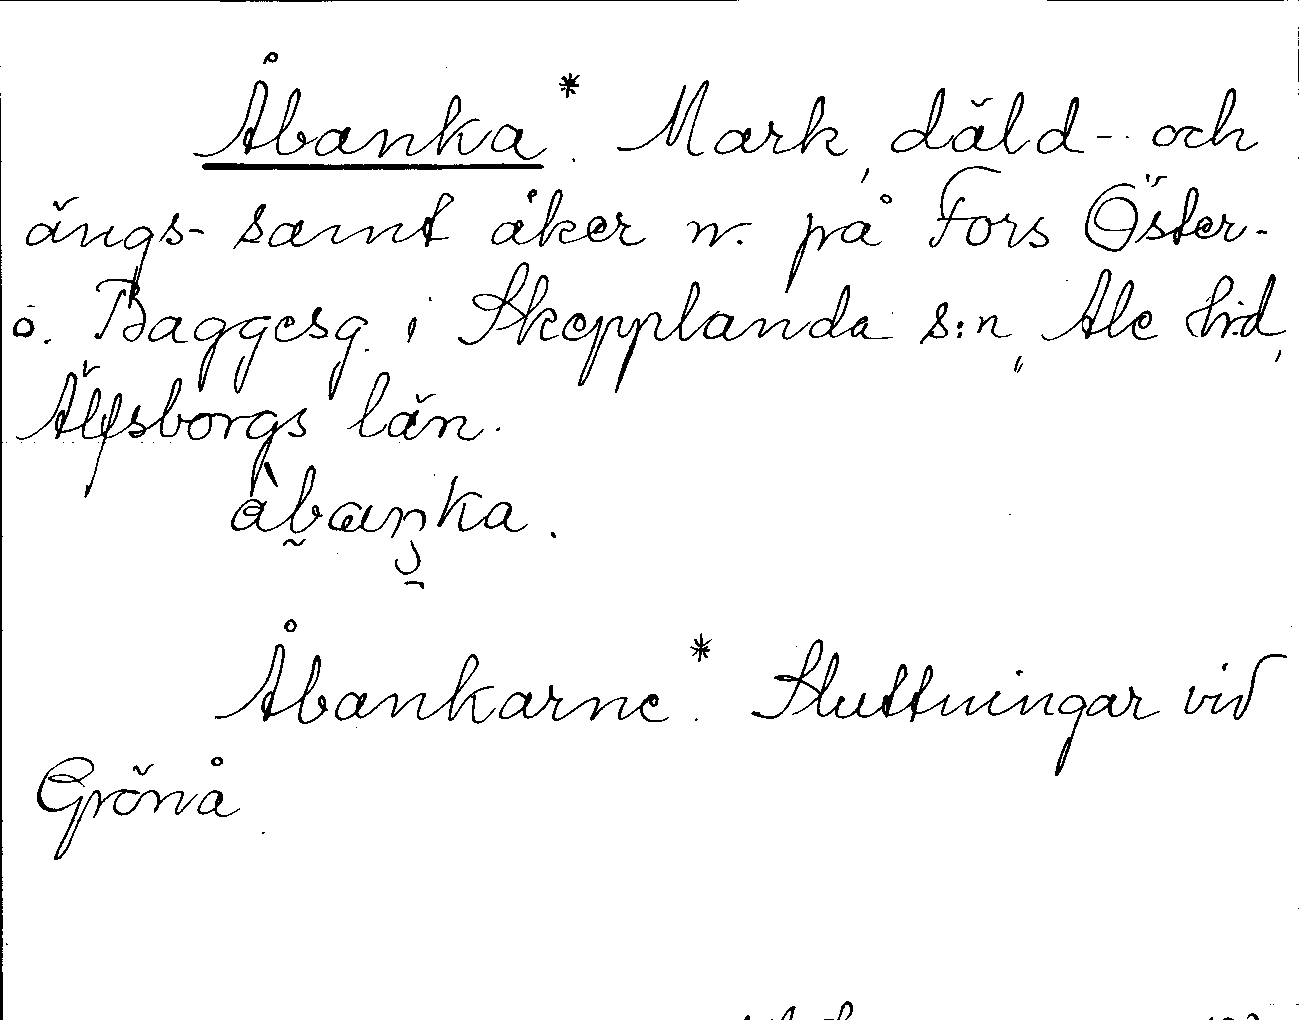 Åbanka*. Mark, däld- och
ängs- samt åker n. på Fors Öster-
o. Baggesg. i Skepplanda s:n, Ale h:d,
Älfsborgs län.
àbaŋka.
Åbankarne*. Sluttningar vid
Grönå